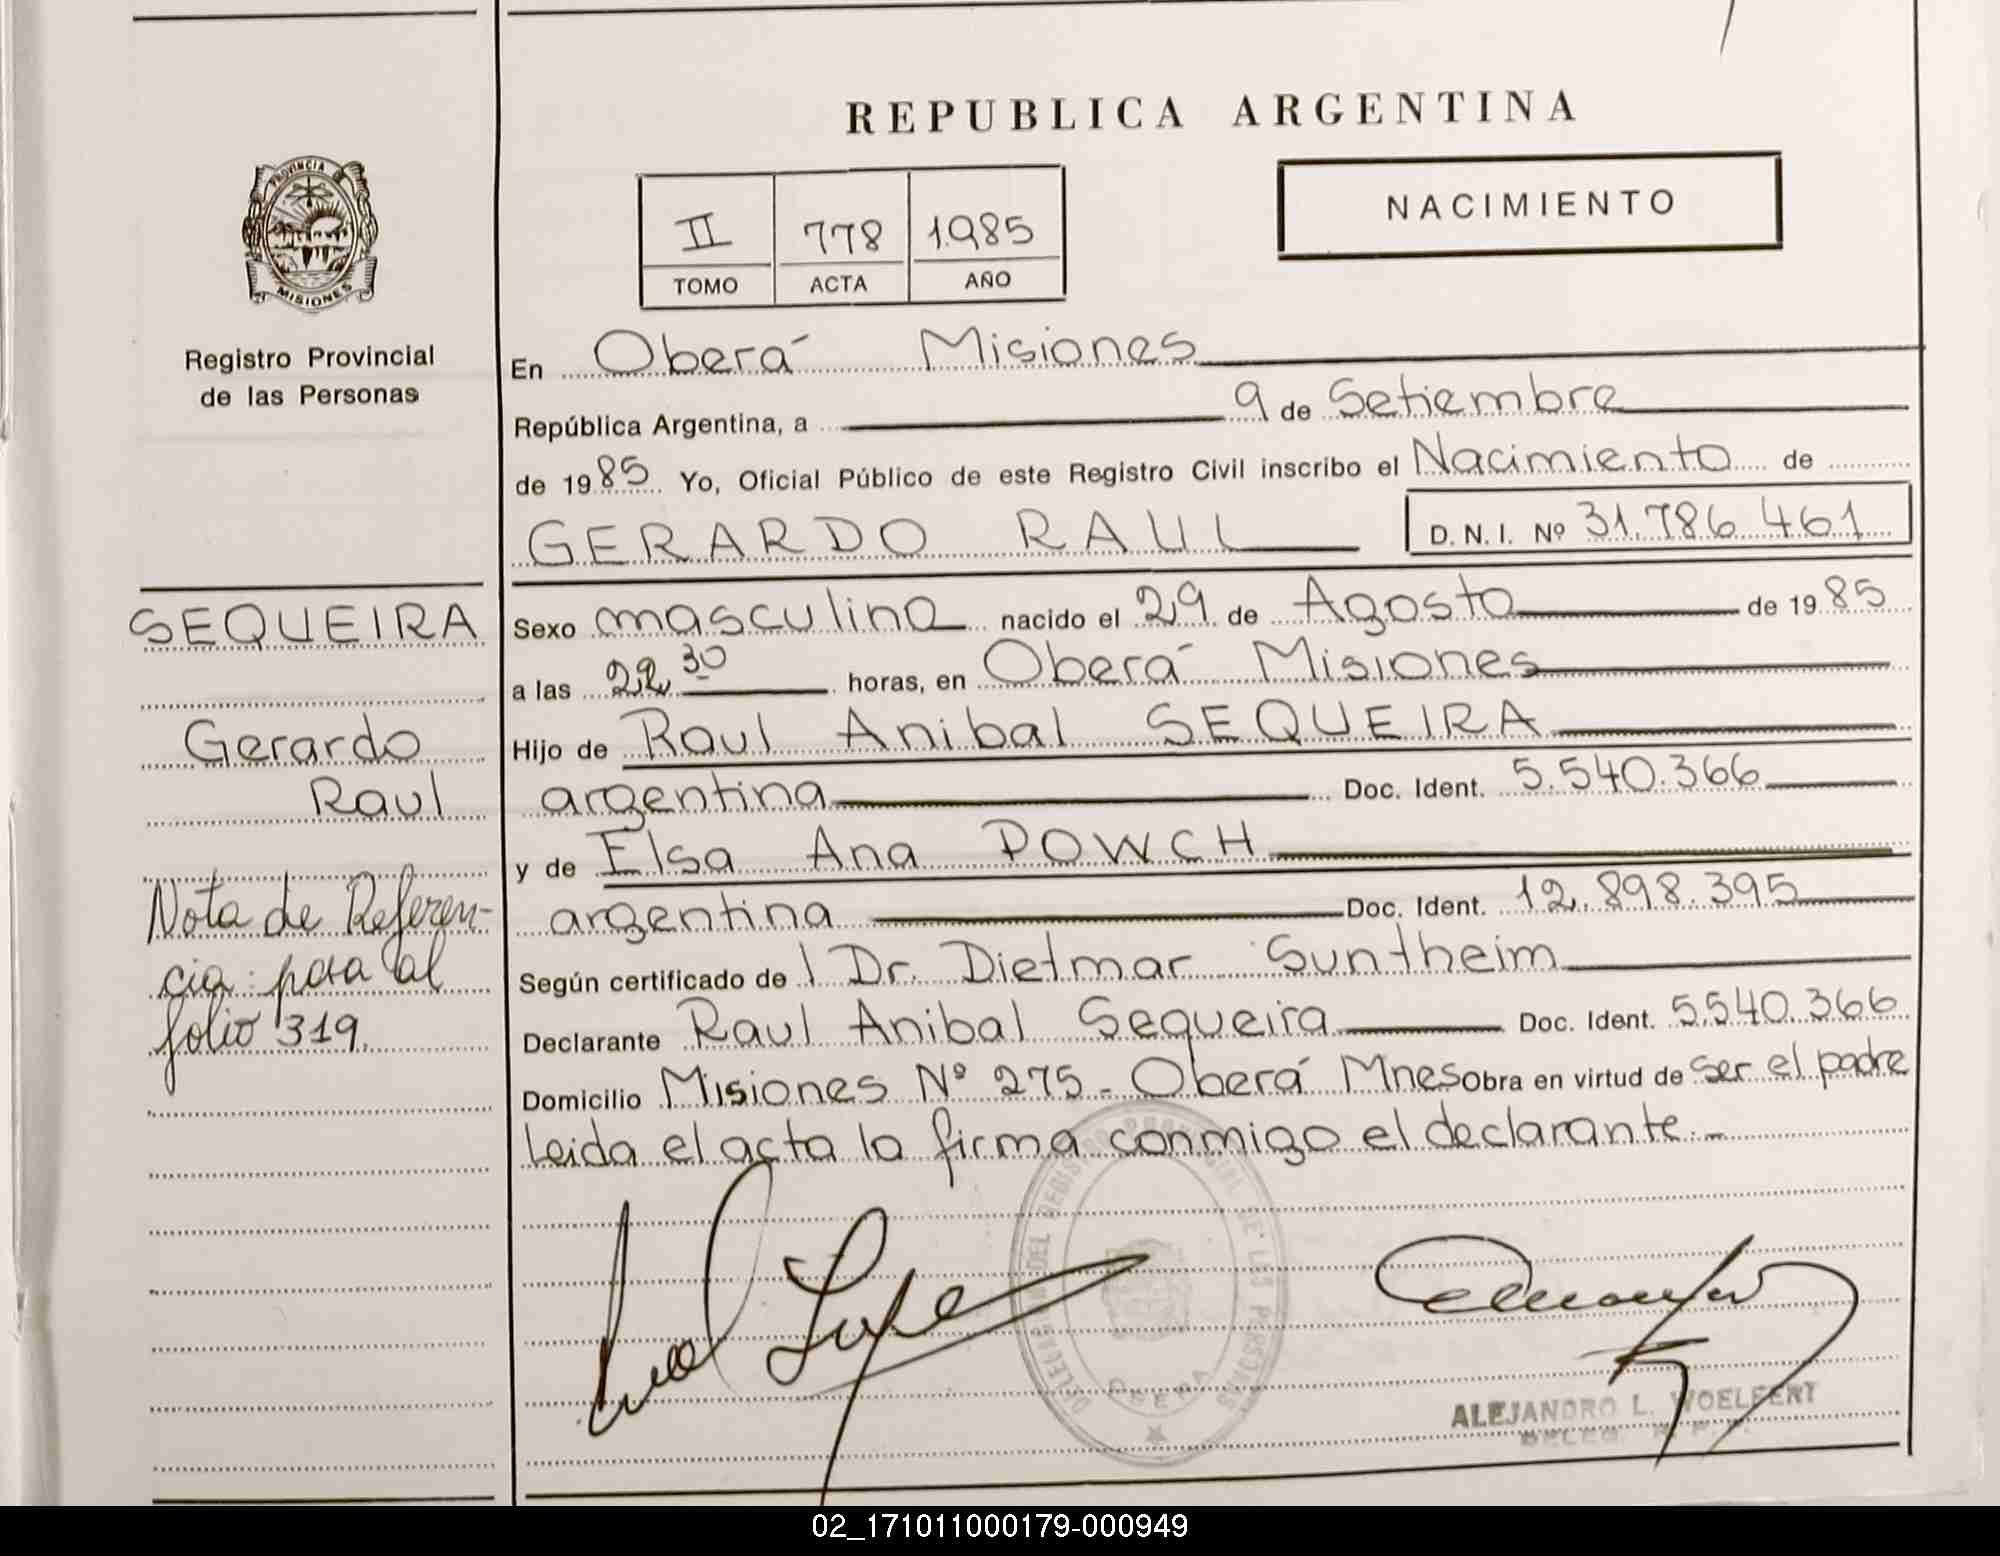 REPUBLICA ARGENTINA
PROVINCIA
MISIONES
Registro Provincial
de las Personas
NACIMIENTO
II 778 1.985
TOMO ACTA AÑO
En Oberá Misiones
República Argentina, a 9 de Setiembre
de 1985 Yo, Oficial Público de este Registro Civil inscribo el Nacimiento de
GERARDO RAUL D. N. I. Nº 31.786.461
SEQUEIRA
Gerardo
Raul
Nota de Referen-
cia: pasa al
folio 319.
Sexo masculino nacido el 29 de Agosto de 1985
a las 22 30 horas, en Oberá Misiones
Hijo de Raul Anibal SEQUEIRA
argentina Doc. Ident. 5.540.366
y de Elsa Ana POWCH
argentina Doc. Ident. 12.898.395
Según certificado de l Dr. Dietmar Suntheim
Declarante Raul Anibal Sequeira Doc. Ident. 5.540.366
Domicilio Misiones Nº 275 - Oberá Mnes Obra en virtud de ser el padre
Leida el acta la firma conmigo el declarante.-
DEL REGISTRO PROVINCIAL DE LAS PERSONAS
OBERA
ALEJANDRO L. WOELFERT
02_171011000179-000949